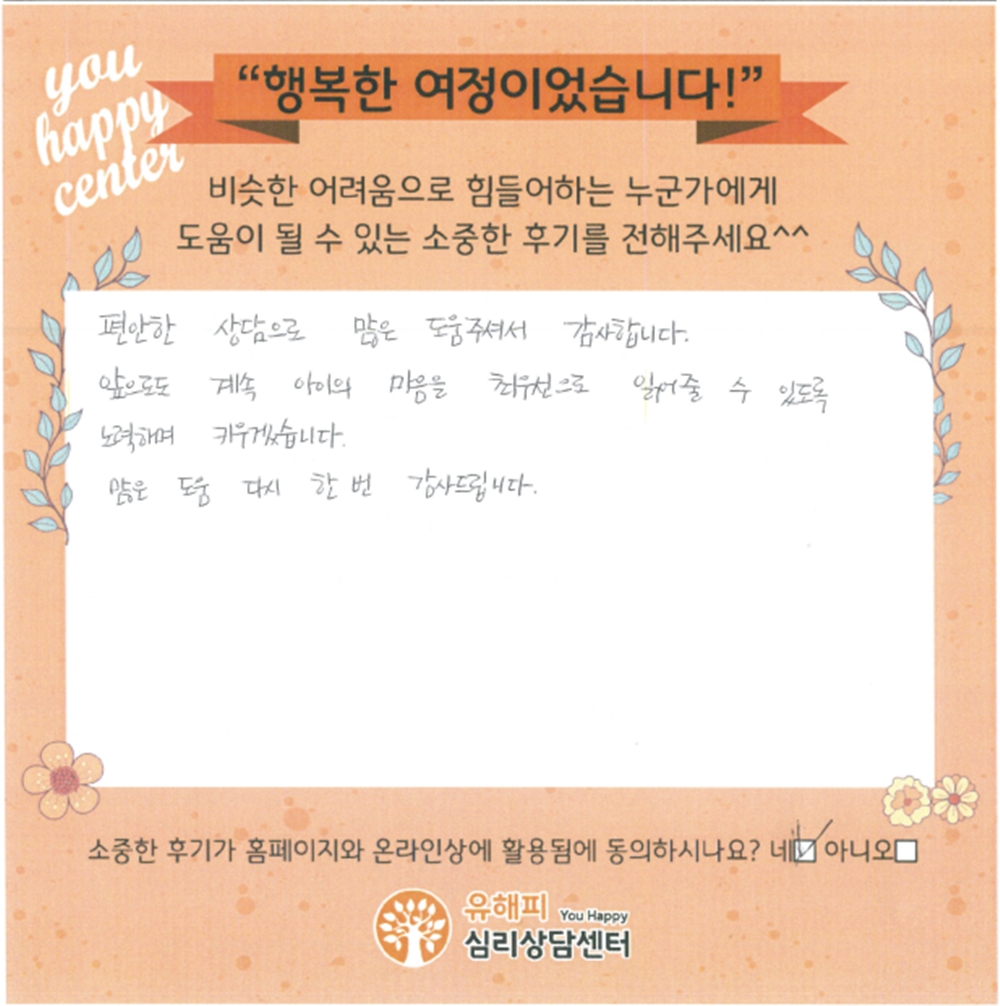 you
happy
center
“행복한 여정이었습니다!”
비슷한 어려움으로 힘들어하는 누군가에게
도움이 될 수 있는 소중한 후기를 전해주세요^^
편안한 상담으로 많은 도움주셔서 감사합니다.
앞으로도 계속 아이의 마음을 최우선으로 읽어줄 수 있도록
노력하며 키우겠습니다.
많은 도움 다시 한 번 감사드립니다.
소중한 후기가 홈페이지와 온라인상에 활용됨에 동의하시나요? 네☑ 아니오☐
유해피 You Happy
심리상담센터